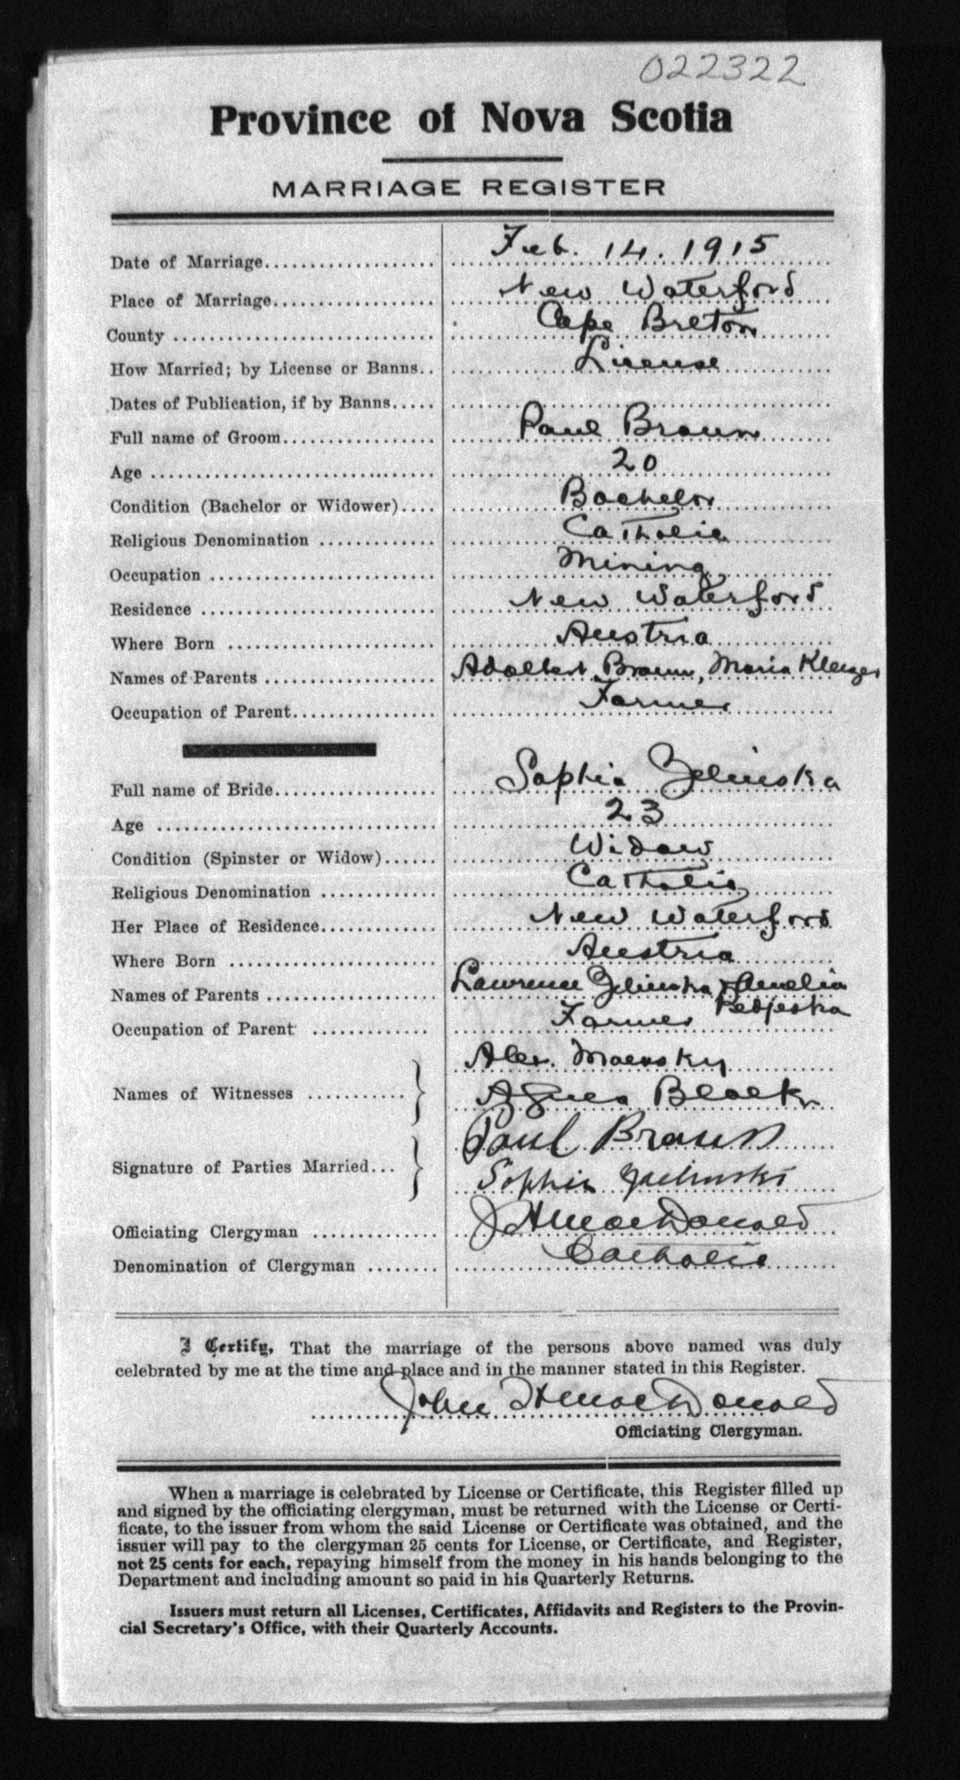 022322
Province of Nova Scotia
MARRIAGE REGISTER
Date of Marriage.................... Feb. 14. 1915
Place of Marriage.................. New Waterford
County ............................. Cape Breton
How Married; by License or Banns.. License
Dates of Publication, if by Banns.....
Full name of Groom................. Paul Braun
Age ................................ 20
Condition (Bachelor or Widower).... Bachelor
Religious Denomination ............. Catholic
Occupation ......................... Mining
Residence .......................... New Waterford
Where Born ....................... Austria
Names of Parents ................... Adalbert Braun, Maria
Occupation of Parent................ Farmer
Full name of Bride.................. Sophia Zelinska
Age ............................... 23
Condition (Spinster or Widow)...... Widow
Religious Denomination ............. Catholic
Her Place of Residence............. New Waterford
Where Born ....................... Austria
Names of Parents ................... Lawrence Zelinska & Amelia
Occupation of Parent ............. Farmer
Alex.
Names of Witnesses ........... Agnes
Paul Braun
Signature of Parties Married... Sophia
Officiating Clergyman .............. J H MacDonald
Denomination of Clergyman ........ Catholic
I Certify, That the marriage of the persons above named was duly
celebrated by me at the time and place and in the manner stated in this Register.
John H MacDonald
Officiating Clergyman.
When a marriage is celebrated by License or Certificate, this Register filled up
and signed by the officiating clergyman, must be returned with the License or Certi-
ficate, to the issuer from whom the said License or Certificate was obtained, and the
issuer will pay to the clergyman 25 cents for License, or Certificate, and Register,
not 25 cents for each, repaying himself from the money in his hands belonging to the
Department and including amount so paid in his Quarterly Returns.
Issuers must return all Licenses, Certificates, Affidavits and Registers to the Provin-
cial Secretary's Office, with their Quarterly Accounts.